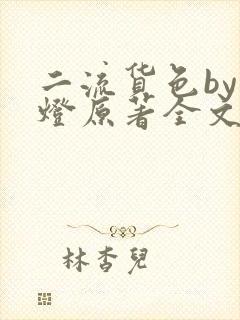 二流货色by
燈原著全文
林杏兒